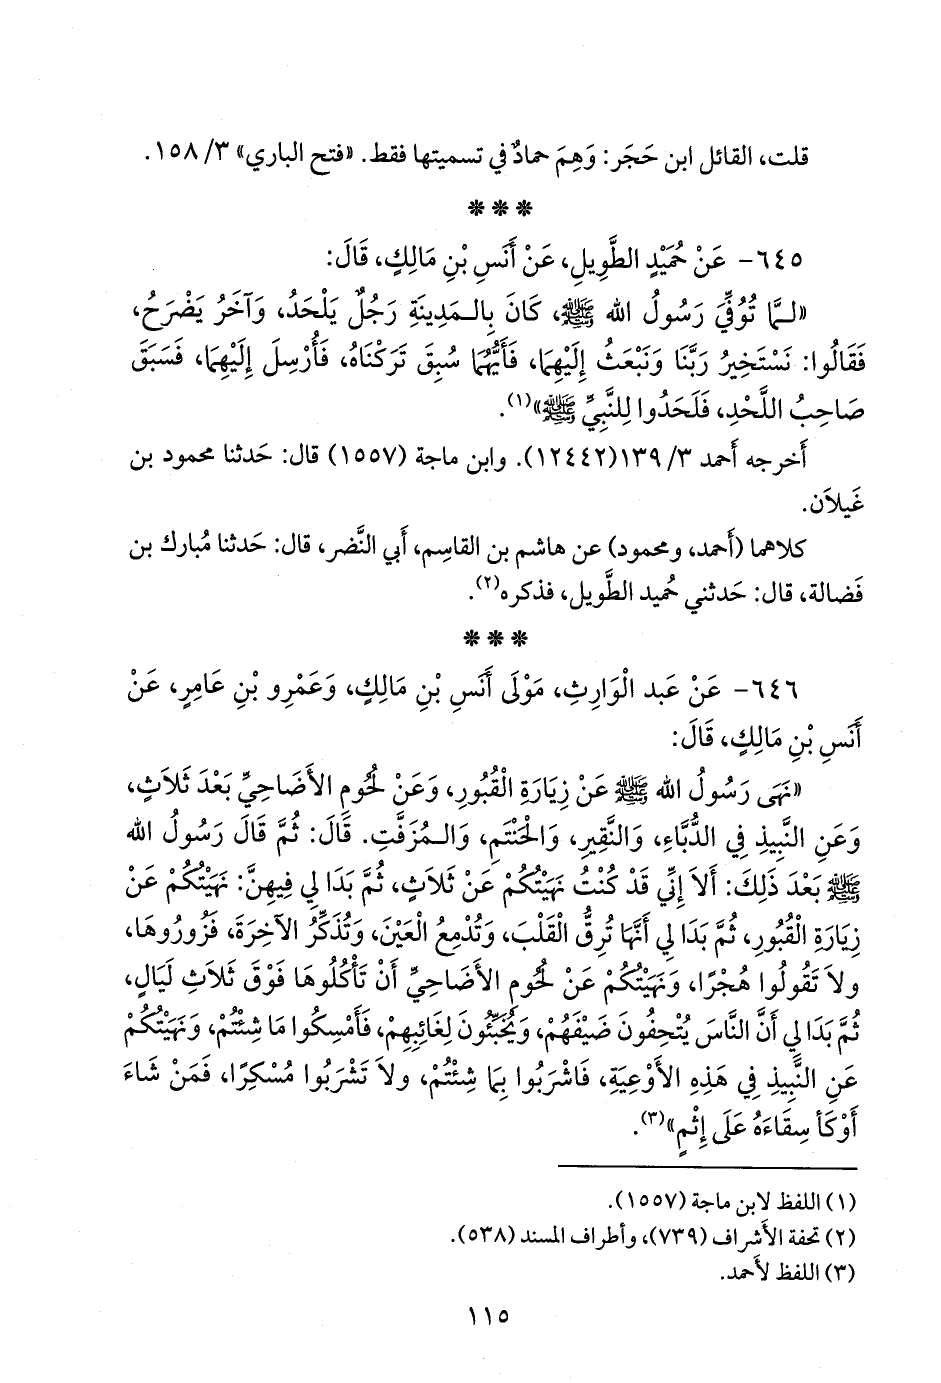 قلت، القائل ابن حَجَر: وَهِمَ حمادٌ في تسميتها فقط. «فتح الباري» ٣/ ١٥٨.
***
٦٤٥- عَنْ حُمَيْدٍ الطَّوِيلِ، عَنْ أَنَسِ بْنِ مَالِكٍ، قَالَ:
«لَمَّا تُوُفِّيَ رَسُولُ الله ﷺ، كَانَ بِالمَدِينَةِ رَجُلٌ يَلْحَدُ، وَآخَرُ يَضْرَحُ،
فَقَالُوا: نَسْتَخِيرُ رَبَّنَا وَنَبْعَثُ إِلَيْهِمَا، فَأَيُّهُمَا سُبِقَ تَرَكْنَاهُ، فَأُرْسِلَ إِلَيْهِمَا، فَسَبَقَ
صَاحِبُ اللَّحْدِ، فَلَحَدُوا لِلنَّبِيِّ ﷺ»(١).
أخرجه أَحمد ٣/ ١٣٩(١٢٤٤٢). وابن ماجة (١٥٥٧) قال: حَدثنا محمود بن
غَيلاَن.
كلاهما (أَحمد، ومحمود) عن هاشم بن القاسِم، أَبي النَّضر، قال: حَدثنا مُبارك بن
فَضالة، قال: حَدثني حُميد الطَّويل، فذكره(٢).
***
٦٤٦- عَنْ عَبد الْوَارِثِ، مَوْلَى أَنَسِ بْنِ مَالِكٍ، وَعَمْرِو بْنِ عَامِرٍ، عَنْ
أَنَسِ بْنِ مَالِكٍ، قَالَ:
«نَهَى رَسُولُ الله ﷺ عَنْ زِيَارَةِ الْقُبُورِ، وَعَنْ لُحُومِ الأَضَاحِيِّ بَعْدَ ثَلاَثٍ،
وَعَنِ النَّبِيذِ فِي الدُّبَّاءِ، وَالنَّقِيرِ، وَالْحَنْتَمِ، وَالمُزَفَّتِ. قَالَ: ثُمَّ قَالَ رَسُولُ الله
ﷺ بَعْدَ ذَلِكَ: أَلاَ إِنِّي قَدْ كُنْتُ نَهَيْتُكُمْ عَنْ ثَلاَثٍ، ثُمَّ بَدَا لِي فِيهِنَّ: نَهَيْتُكُمْ عَنْ
زِيَارَةِ الْقُبُورِ، ثُمَّ بَدَا لِي أَنَّهَا تُرِقُّ الْقَلْبَ، وَتُدْمِعُ الْعَيْنَ، وَتُذَكِّرُ الآخِرَةَ، فَزُورُوهَا،
وَلاَ تَقُولُوا هُجْرًا، وَنَهَيْتُكُمْ عَنْ لُحُومِ الأَضَاحِيِّ أَنْ تَأْكُلُوهَا فَوْقَ ثَلاَثِ لَيَالٍ،
ثُمَّ بَدَا لِي أَنَّ النَّاسَ يُتْحِفُونَ ضَيْفَهُمْ، وَيُخَبِّئُونَ لِغَائِبِهِمْ، فَأَمْسِكُوا مَا شِئْتُمْ، وَنَهَيْتُكُمْ
عَنِ النَّبِيذِ فِي هَذِهِ الأَوْعِيَةِ، فَاشْرَبُوا بِمَا شِئْتُمْ، وَلاَ تَشْرَبُوا مُسْكِرًا، فَمَنْ شَاءَ
أَوْكَأَ سِقَاءَهُ عَلَى إِثْمٍ»(٣).
(١) اللفظ لابن ماجة (١٥٥٧).
(٢) تحفة الأَشراف (٧٣٩)، وأطراف المسند (٥٣٨).
(٣) اللفظ لأَحمد.
١١٥